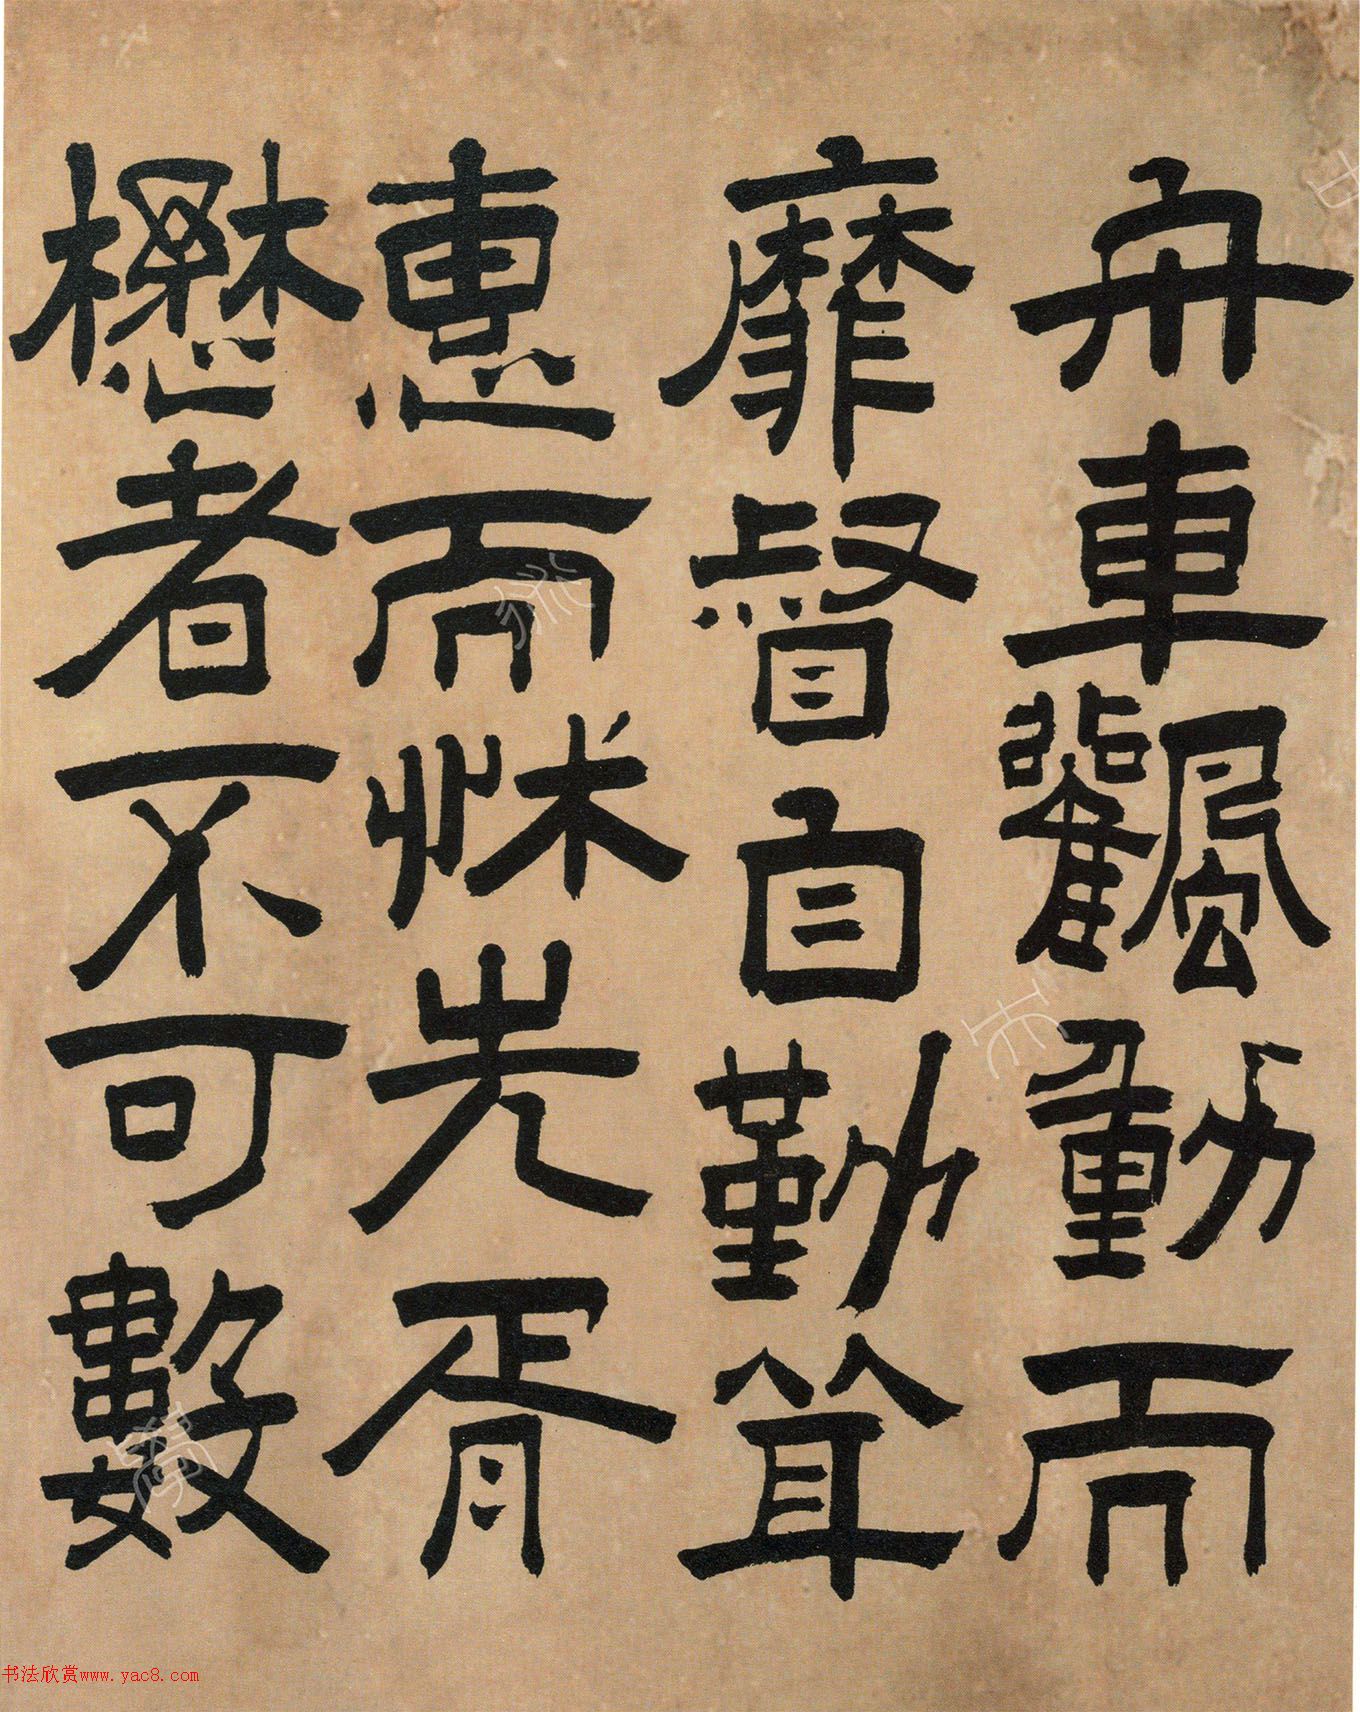 舟車動而
靡督自勤茸
惠而怵先胥
懋者不可數
书法欣赏www.yac8.com